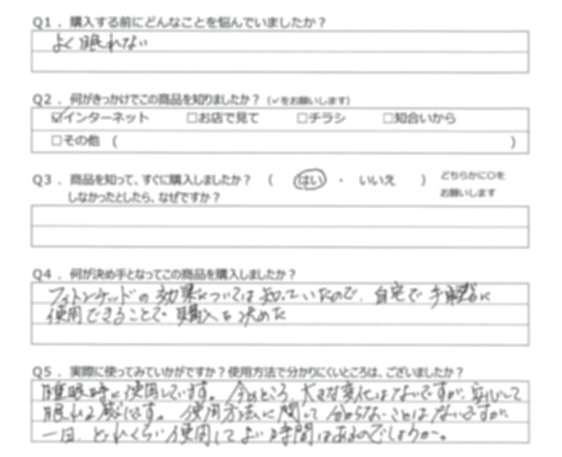 Q1．購入する前にどんなことを悩んでいましたか？
よく眠れない
Q2．何がきっかけでこの商品を知りましたか？（✓をお願いします）
☑インターネット　□お店で見て　□チラシ　□知合いから
□その他（　　　）
Q3．商品を知って、すぐに購入しましたか？（　はい　・　いいえ　）どちらかに○を
お願いします
しなかったとしたら、なぜですか？
Q4．何が決め手となってこの商品を購入しましたか？
フィトンチッドの効果については知っていたので、自宅で手軽に
使用できることで購入を決めた
Q5．実際に使ってみていかがですか？使用方法で分かりにくいところは、ございましたか？
睡眠時に使用しています。今のところ、大きな変化はないですが、安心して
眠れる感じです。使用方法に関して分からないことはないですが、
一日、どれくらい使用してよい時間はあるのでしょうか。